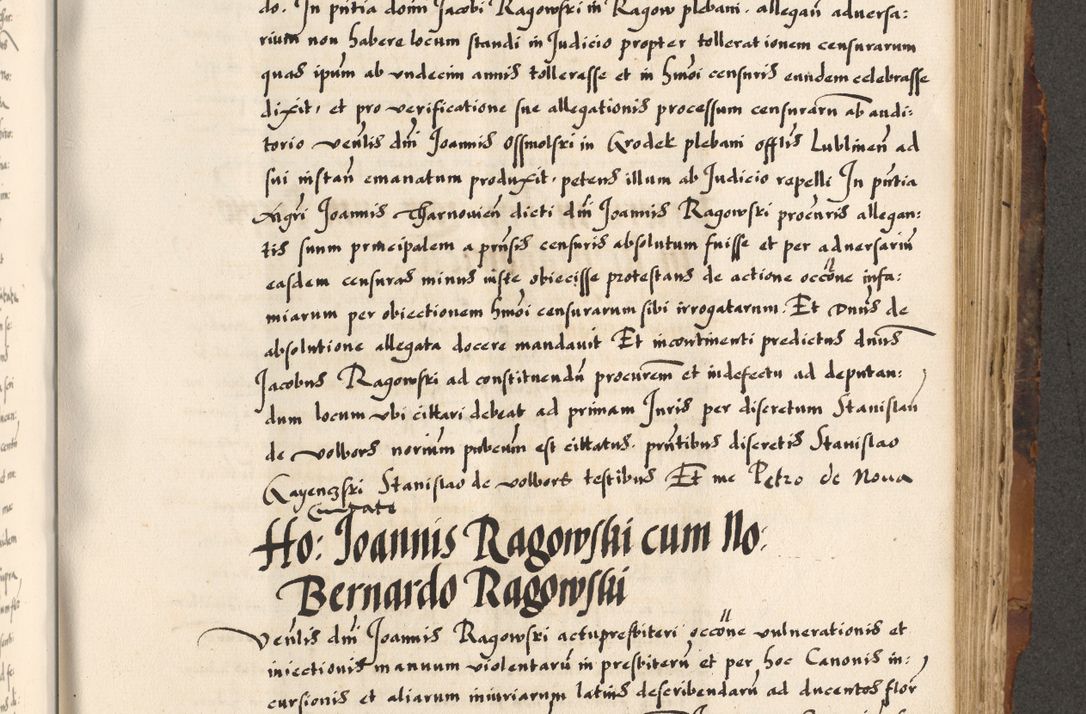 do. In pntia domi Jacobi Ragowski in Ragow plebani. allegan aduersa:
rium non habere locum standi in Judicio propter tollerationem censurarum
quas ipum ab vndecim annis tollerasse et in hmoi censuris eundem celebrasse
dixit, et pro verificatione sue allegationis processum censuraru ab audi:
torio venlis dni Joannis Ossmolski in Grodek plebani offlis Lublinen ad
sui instan emanatum produxit, petens illum ab Judicio repelli In pntia
Mgri Joannis Tharnouien dicti dni Joannis Ragowski procuris allegan:
tis suum principalem a prnsis censuris absolutum fuisse et per aduersariu
easdem censuras minus iuste obiecisse protestans de actione occone infa:
miarum per obiectionem hmoi censurarum sibi irrogatarum. Et Dnus de
absolutione allegata docere mandauit Et incontinenti predictus dnus
Jacobus Ragowski ad constituendu procurem et indefectu ad deputan:
dum locum vbi cittari debeat ad primam Juris per discretum Stanislau
de volbors norium pubcum est cittatus. prntibus discretis Stanislao
Gayenczski Stanislao de volbors testibus Et me Petro de Noua
Ciuitate
Ho: Joannis Ragowski cum No:
Bernardo Ragowski
Venlis dni Joannis Ragowski actupresbiteri occone vulnerationis et
iniectionis manuum violentaru in presbiteru et per hoc Canonis in:
cursionis et aliarum iniuriarum latius describendaru ad ducentos flor